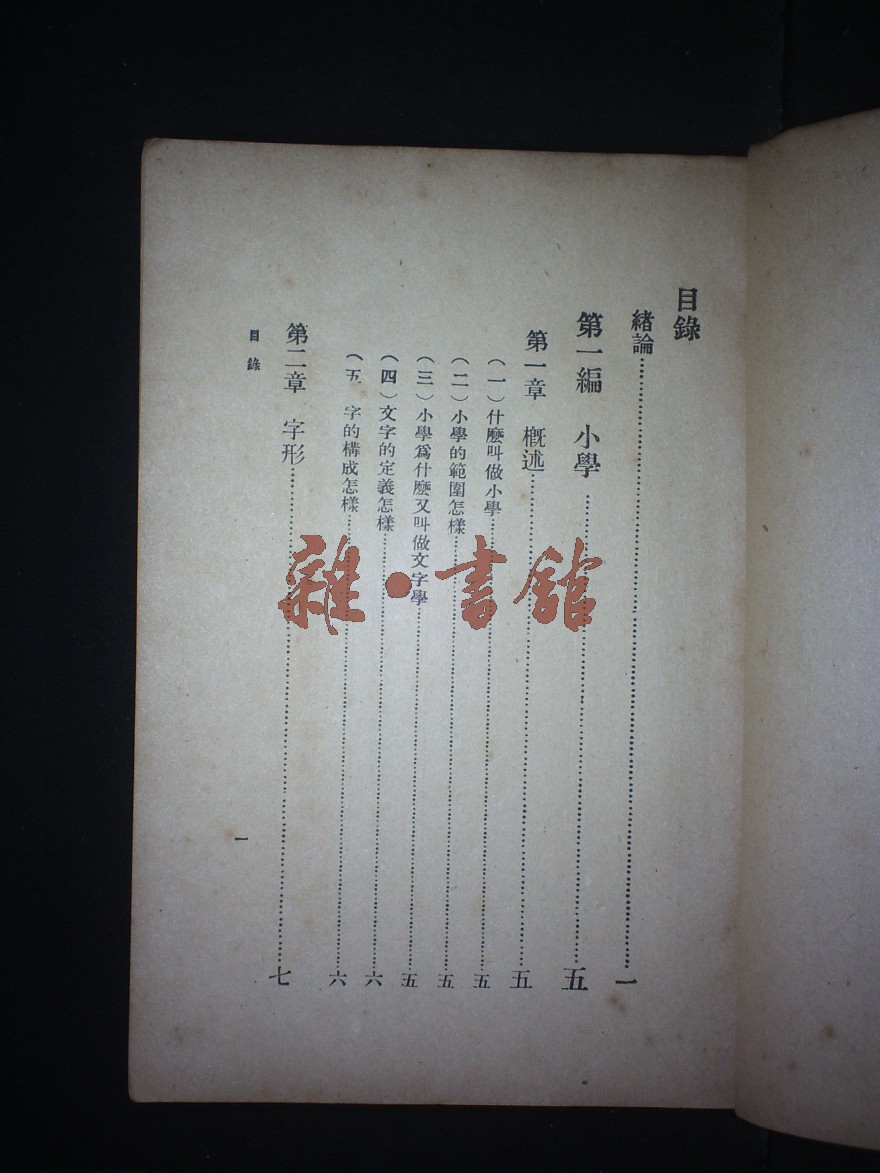 目錄
緒論……………………一
第一編　小學……………………五
第一章　概述……………………五
（一）什麼叫做小學……………………五
（二）小學的範圍怎樣……………………五
（三）小學爲什麼又叫做文字學……………………五
（四）文字的定義怎樣……………………六
（五　字的構成怎樣……………………六
第二章　字形……………………七
目錄
一
雜・書館